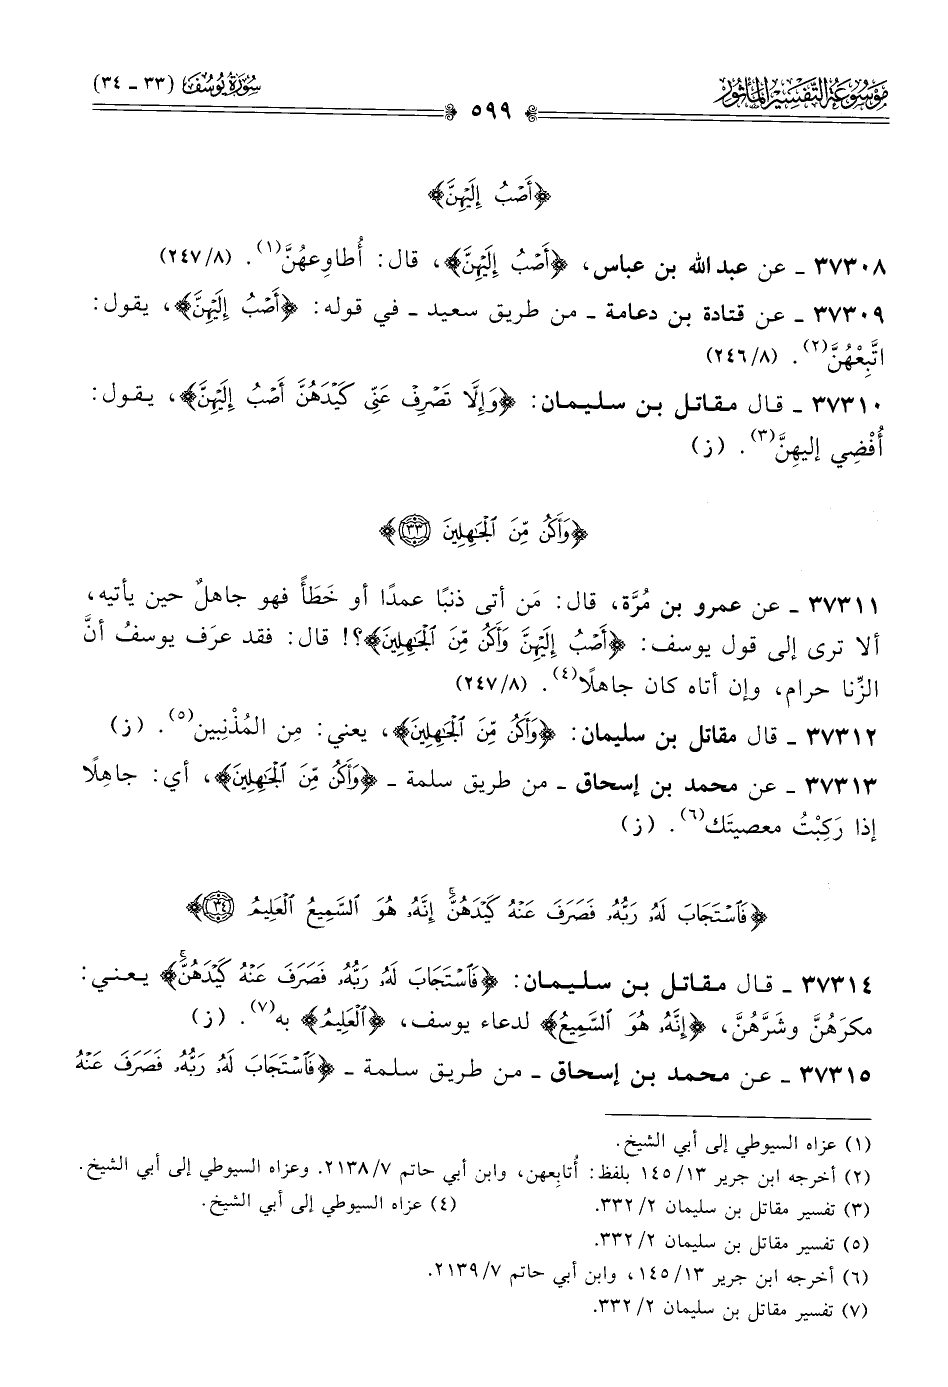 موسوعة التفسير المأثور
سورة يوسف (٣٣ - ٣٤)
٥٩٩
﴿أَصْبُ إِلَيْهِنَّ﴾
٣٧٣٠٨ - عن عبد الله بن عباس، ﴿أَصْبُ إِلَيْهِنَّ﴾، قال: أُطاوِعهُنَّ(١). (٢٤٧/٨)
٣٧٣٠٩ - عن قتادة بن دعامة - من طريق سعيد - في قوله: ﴿أَصْبُ إِلَيْهِنَّ﴾، يقول:
اتَّبِعْهُنَّ(٢). (٢٤٦/٨)
٣٧٣١٠ - قال مقاتل بن سليمان: ﴿وَإِلَّا تَصْرِفْ عَنِّي كَيْدَهُنَّ أَصْبُ إِلَيْهِنَّ﴾، يقول:
أُفْضِي إليهِنَّ(٣). (ز)
﴿وَأَكُن مِّنَ ٱلْجَٰهِلِينَ ٣٣﴾
٣٧٣١١ - عن عمرو بن مُرَّة، قال: مَن أتى ذنبًا عمدًا أو خَطَأً فهو جاهلٌ حين يأتيه،
ألا ترى إلى قول يوسف: ﴿أَصْبُ إِلَيْهِنَّ وَأَكُن مِّنَ ٱلْجَٰهِلِينَ﴾؟! قال: فقد عرَف يوسفُ أنَّ
الزِّنا حرام، وإن أتاه كان جاهلًا(٤). (٢٤٧/٨)
٣٧٣١٢ - قال مقاتل بن سليمان: ﴿وَأَكُن مِّنَ ٱلْجَٰهِلِينَ﴾، يعني: مِن المُذْنِبين(٥). (ز)
٣٧٣١٣ - عن محمد بن إسحاق - من طريق سلمة - ﴿وَأَكُن مِّنَ ٱلْجَٰهِلِينَ﴾، أي: جاهِلًا
إذا رَكِبْتُ معصيتَك(٦). (ز)
﴿فَٱسْتَجَابَ لَهُۥ رَبُّهُۥ فَصَرَفَ عَنْهُ كَيْدَهُنَّ ۚ إِنَّهُۥ هُوَ ٱلسَّمِيعُ ٱلْعَلِيمُ ٣٤﴾
٣٧٣١٤ - قال مقاتل بن سليمان: ﴿فَٱسْتَجَابَ لَهُۥ رَبُّهُۥ فَصَرَفَ عَنْهُ كَيْدَهُنَّ ۚ﴾ يعني:
مكرَهُنَّ وشَرَّهُنَّ، ﴿إِنَّهُۥ هُوَ ٱلسَّمِيعُ﴾ لدعاء يوسف، ﴿ٱلْعَلِيمُ﴾ به(٧). (ز)
٣٧٣١٥ - عن محمد بن إسحاق - من طريق سلمة - ﴿فَٱسْتَجَابَ لَهُۥ رَبُّهُۥ فَصَرَفَ عَنْهُ
(١) عزاه السيوطي إلى أبي الشيخ.
(٢) أخرجه ابن جرير ١٤٥/١٣ بلفظ: أُتابِعهن، وابن أبي حاتم ٢١٣٨/٧. وعزاه السيوطي إلى أبي الشيخ.
(٣) تفسير مقاتل بن سليمان ٣٣٢/٢. (٤) عزاه السيوطي إلى أبي الشيخ.
(٥) تفسير مقاتل بن سليمان ٣٣٢/٢.
(٦) أخرجه ابن جرير ١٤٥/١٣، وابن أبي حاتم ٢١٣٩/٧.
(٧) تفسير مقاتل بن سليمان ٣٣٢/٢.